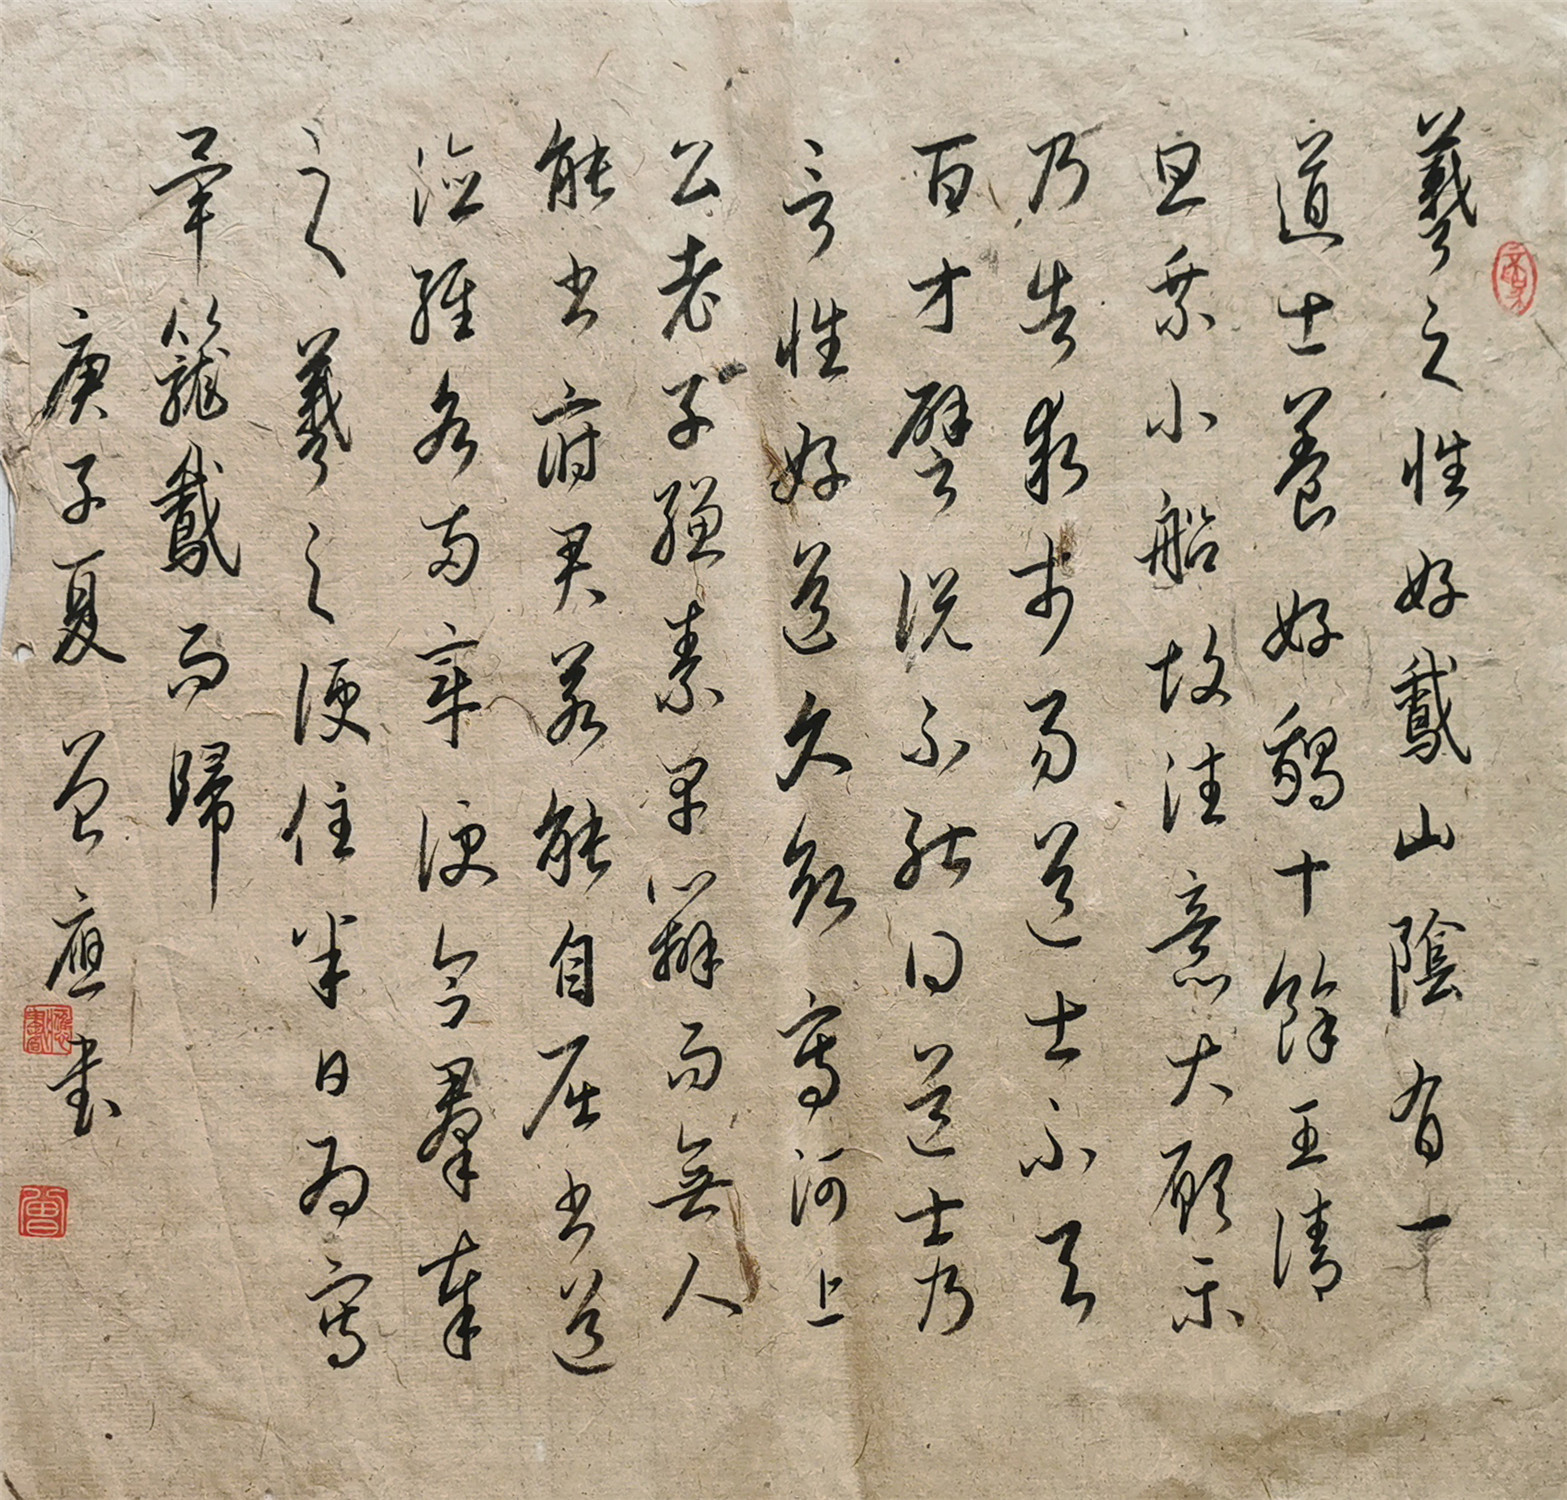 羲之性好鵞山陰有一
道士養好鵝十餘王清
旦乘小船故往意大願樂
乃告求市易道士不與
百方譬說不能得道士乃
言性好道久欲寫河上
公老子縑素早辦而無人
能書府君若能自屈書道
德經各兩章便合羣奉
之羲之便住半日為寫
畢籠鵞而歸
庚子夏曾應書